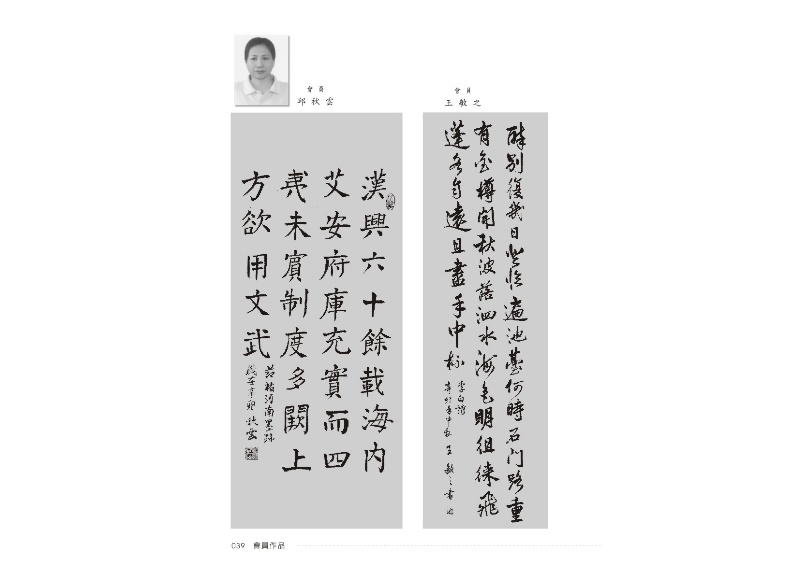 會員
邱秋雲
漢興六十餘載海內
艾安府庫充實而四
夷未賓制度多闕上
方欲用文武
褚河南墨跡
歲在辛卯 秋雲
會員
王敏之
醉別復幾日登臨遍池臺何時石门路重
有金樽開秋波落泗水海色明徂徠飛
蓬各自遠且盡手中杯 李白詩
辛卯年中秋 王敏之書
039 會員作品